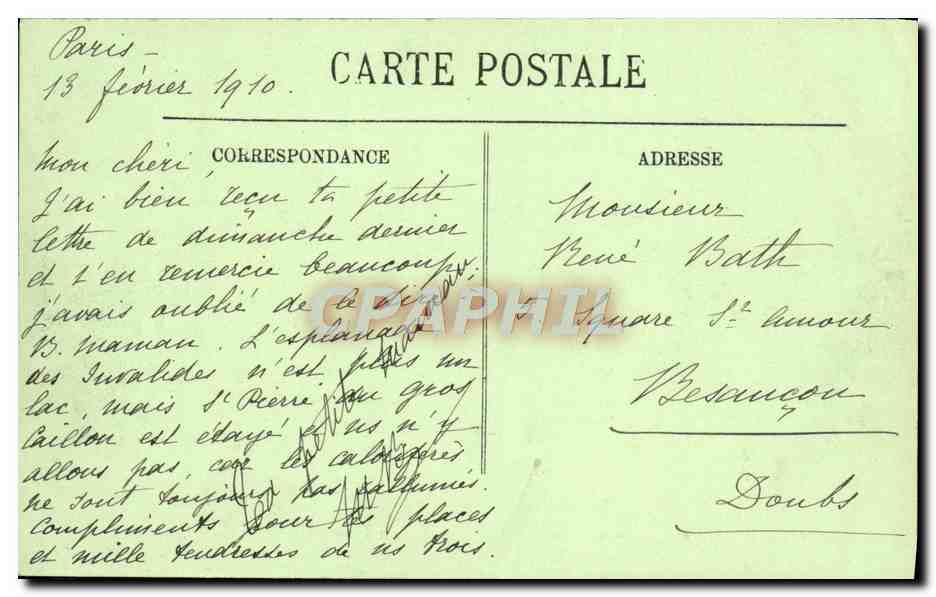 Paris -
13 février 1910.
CARTE POSTALE
CORRESPONDANCE
Mon chéri,
J'ai bien reçu ta petite
lettre de dimanche dernier
et t'en remercie beaucoup.
j'avais oublié de le dire
B. maman. L'esplanade
des Invalides n'est plus un
lac, mais St Pierre du gros
Caillou est étayé et ns n'y
allons pas, car les calorifères
ne sont toujours pas rallumés.
Compliments pour tes places
et mille tendresses de ns trois.
ADRESSE
Monsieur
René Bath
5 Square St Amour
Besançon
Doubs
CPAPHIL